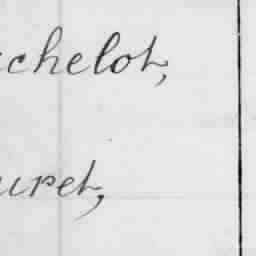 chelot,
uret,